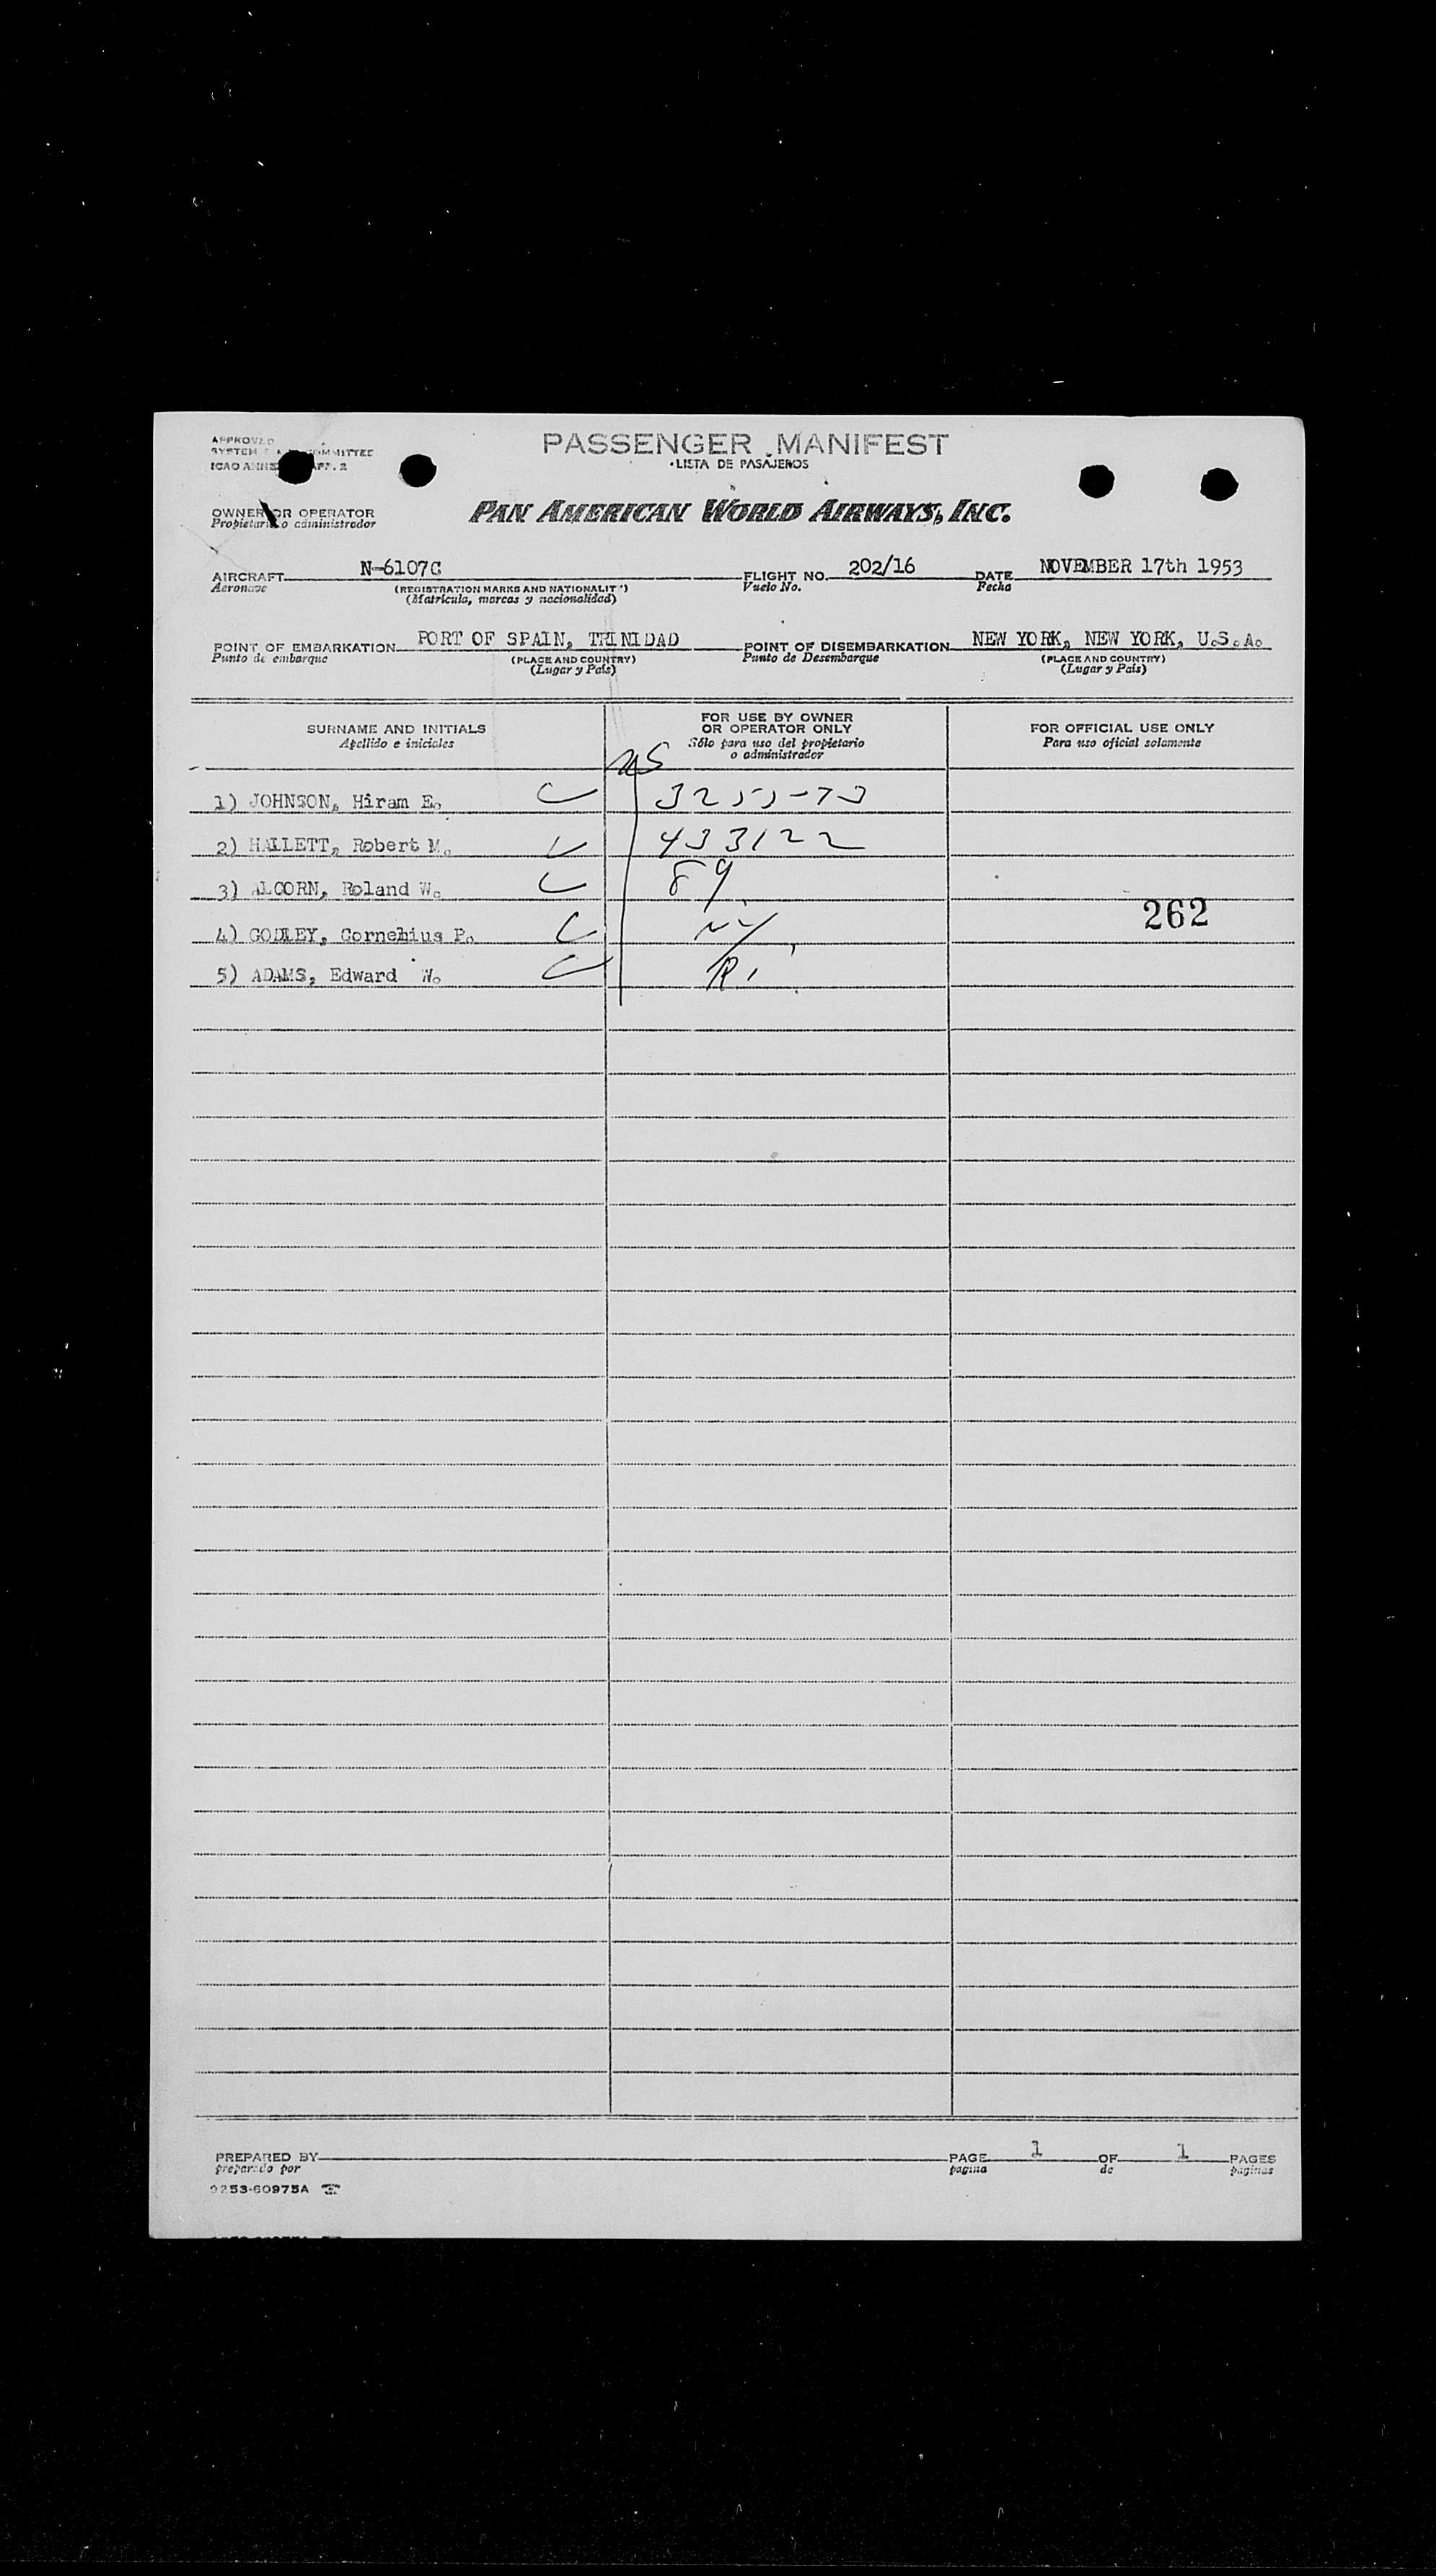 APPROVED
SYSTEM COMMITTEE
ICAO ANNEX APP. 2
PASSENGER MANIFEST
LISTA DE PASAJEROS
OWNER OR OPERATOR
Propietario o administrador
PAN AMERICAN WORLD AIRWAYS, INC.
AIRCRAFT N-6107C FLIGHT NO. 202/16 DATE NOVEMBER 17th 1953
Aeronave (REGISTRATION MARKS AND NATIONALITY) Vuelo No. Fecha
(Matrícula, marcas y nacionalidad)
POINT OF EMBARKATION PORT OF SPAIN, TRINIDAD POINT OF DISEMBARKATION NEW YORK, NEW YORK, U.S.A.
Punto de embarque (PLACE AND COUNTRY) Punto de Desembarque (PLACE AND COUNTRY)
(Lugar y País) (Lugar y País)
SURNAME AND INITIALS
Apellido e iniciales
FOR USE BY OWNER
OR OPERATOR ONLY
Sólo para uso del propietario
o administrador
FOR OFFICIAL USE ONLY
Para uso oficial solamente
US
1) JOHNSON, Hiram E.
2) HALLETT, Robert M. 433122
3) ALCORN, Roland W. 89
4) GODLEY, Cornehius P. NY
5) ADAMS, Edward W. RI
262
PREPARED BY PAGE 1 OF 1 PAGES
preparado por pagina de paginas
0253-60975A